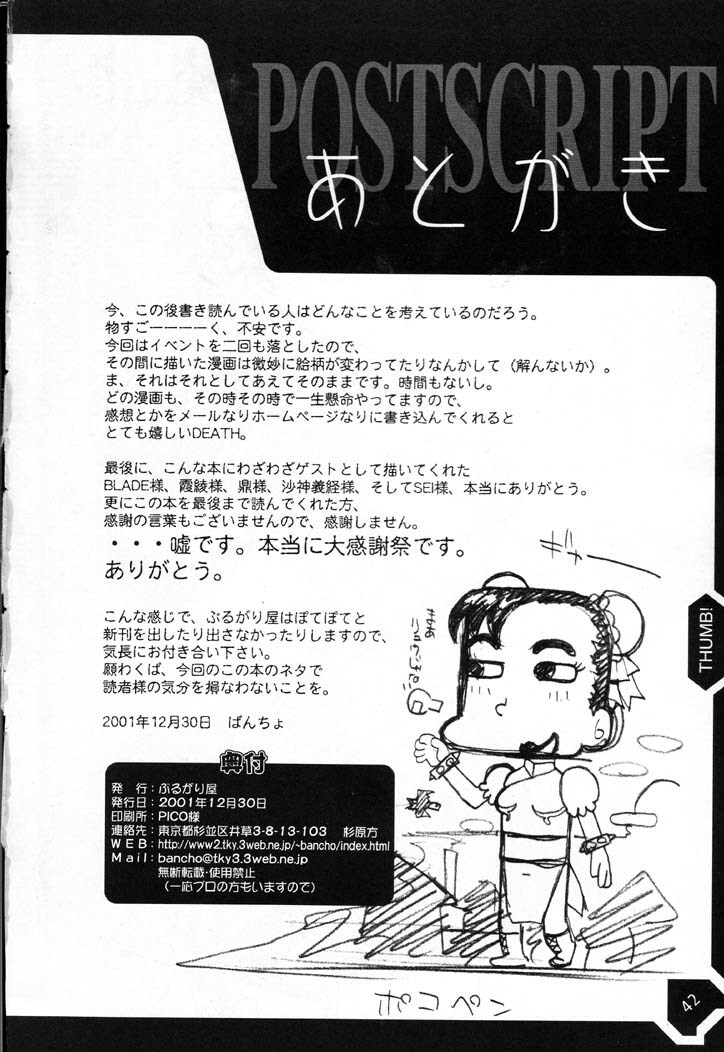 POSTSCRIPT
あとがき
今、この後書き読んでいる人はどんなことを考えているのだろう。
物すごーーーーく、不安です。
今回はイベントを二回も落としたので、
その間に描いた漫画は微妙に絵柄が変わってたりなんかして（解んないか）。
ま、それはそれとしてあえてそのままです。時間もないし。
どの漫画も、その時その時で一生懸命やってますので、
感想とかをメールなりホームページなりに書き込んでくれると
とても嬉しいDEATH。
最後に、こんな本にわざわざゲストとして描いてくれた
BLADE様、霞綾様、鼎様、沙神義経様、そしてSEI様、本当にありがとう。
更にこの本を最後まで読んでくれた方、
感謝の言葉もございませんので、感謝しません。
・・・嘘です。本当に大感謝祭です。
ありがとう。
こんな感じで、ぶるがり屋はぽてぽてと
新刊を出したり出さなかったりしますので、
気長にお付き合い下さい。
願わくば、今回のこの本のネタで
読者様の気分を損なわないことを。
2001年12月30日　ばんちょ
奥付
発　行：ぶるがり屋
発行日：2001年12月30日
印刷所：PICO様
連絡先：東京都杉並区井草3-8-13-103　杉原方
ＷＥＢ：http://www2.tky.3web.ne.jp/~bancho/index.html
Mail：bancho@tky3.3web.ne.jp
無断転載・使用禁止
（一応プロの方もいますので）
ギャー
THUMB!
ポコペン
42